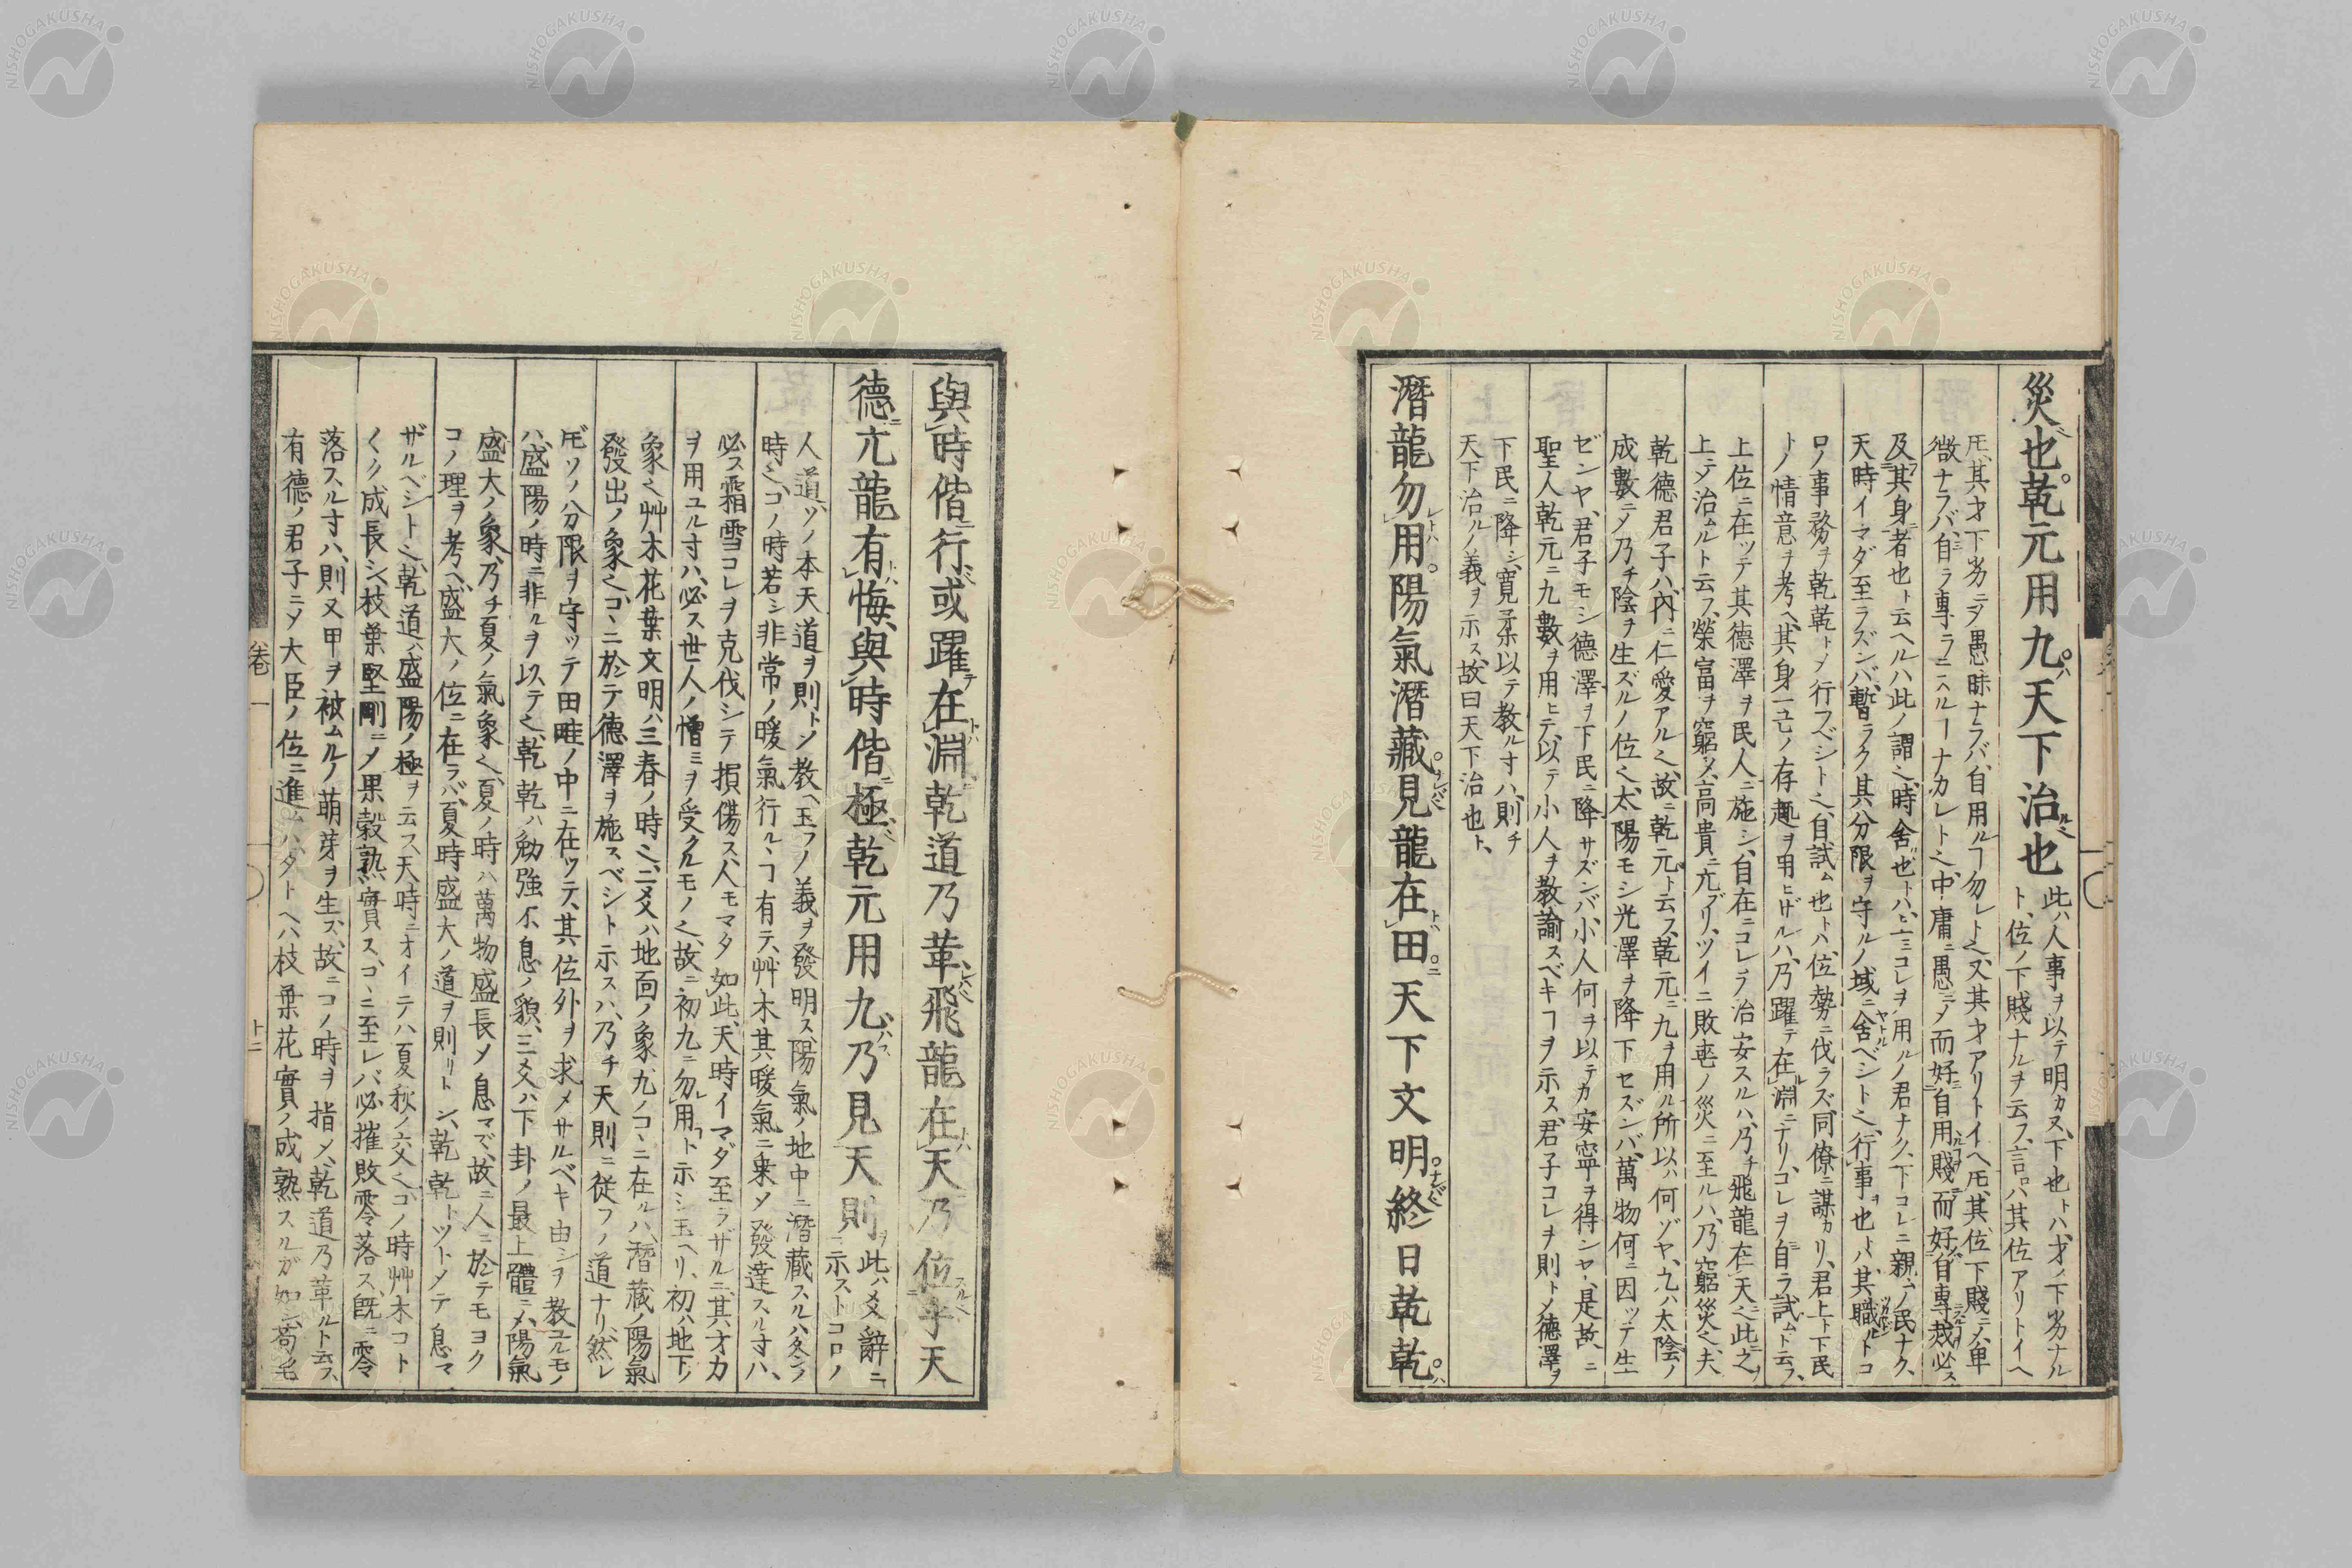 災也乾元用九天下治也
此ハ人事ヲ以テ明カス、下也トハ、才ノ下劣ナル
ト、位ノ下賤ナルヲ云フ、言ハ其位アリトイヘ
𪜈、其才下劣ニメ愚昧ナラバ、自用ルヿ勿レト之、又其才アリトイヘ𪜈、其位下賤ニメ、卑
微ナラバ、自ラ專ラニスルヿナカレト之、中庸ニ愚ニメ而好自用賤而好自專裁必ス
及其身者也ト云ヘルハ此ノ謂之、時舍也トハ、コレヲ用ルノ君ナク、下コレニ親ムノ民ナク、
天時イマダ至ラズンバ、暫ラク其分限ヲ守ルノ域ニ舍ベシト之、行事也トハ、其職ルトコ
ロノ事務ヲ乾乾トメ行フベシト之、自試ム也トハ、位勢ニ伐ラズ、同僚ニ謀カリ、君上ト下民
トノ情意ヲ考ヘ、其身一己ノ存趣ヲ用ヒザルハ、乃躍テ在淵ニナリ、コレヲ自ラ試ムト云フ、
上位ニ在ツテ其德澤ヲ民人ニ施シ、自在ニコレヲ治安スルハ、乃チ飛龍在天之此之ヲ
上ヲ治ムルト云フ、榮富ヲ窮メ、高貴ニ亢ブリ、ツイニ敗亡ノ災ニ至ルハ、乃窮災之、夫
乾德君子ハ、內ニ仁愛アル之、故ニ乾元ト云フ、乾元ニ九ヲ用ル所以ハ何ゾヤ、九ハ太陰ノ
成數ニメ乃チ陰ヲ生ズルノ位之、太陽モシ光澤ヲ降下セズンバ、萬物何ニ因ツテ生
ゼンヤ、君子モシ德澤ヲ下民ニ降サズンバ、小人何ヲ以テカ安寧ヲ得シヤ、是故ニ
聖人乾元ニ九數ヲ用ヒテ、以テ小人ヲ教諭スベキヿヲ示ス、君子コレヲ則トメ、德澤ヲ
下民ニ降シ、寬柔以テ教ルヰハ、則チ
天下治ルノ義ヲ示ス、故曰天下治也ト、
潛龍勿用陽氣潛藏見龍在田天下文明終日乾乾
與時偕行或躍在淵乾道乃革飛龍在天乃位乎天
德亢龍有悔與時偕極乾元用九乃見天則
此ハ爻辭ニ
示ストコロノ
人道ソノ本天道ヲ則トシ教ヘ玉フノ義ヲ發明ス、陽氣ノ地中ニ潛藏スルハ冬ノ
時之、コノ時若シ非常ノ暖氣行ルヽヿ有テ、艸木其暖氣ニ乗メ發達スル寸ハ、
必ス霜雪コレヲ克伐シテ損傷ス、人モマタ如此、天時イマダ至ラザルニ、其才力
ヲ用ユル寸ハ、必ス世人ノ憎ミヲ受クルモノ之、故ニ初九ニ勿用ト示シ玉ヘリ、初ハ地下ノ
象之艸木花葉文明ハ三春ノ時之、二爻ハ地面ノ象、九ノコヽニ在ルハ、潛藏ノ陽氣
發出ノ象之、コヽニ於テ德澤ヲ施スベシト示スハ、乃チ天則ニ從フノ道ナリ、然レ
𪜈ソノ分限ヲ守ツテ田畦ノ中ニ在ツテ、其位外ヲ求メサルベキ由シヲ教ユルモノ
ハ盛陽ノ時ニ非ルヲ以テ之、乾乾ハ勉強不息ノ貌、三爻ハ下卦ノ最上體ニメ、陽氣
盛大ノ象、乃チ夏ノ氣象之、夏ノ時ハ萬物盛長メ息マズ、故ニ人ニ於テモヨク
コノ理ヲ考ヘ、盛大ノ位ニ在ラバ、夏時盛大ノ道ヲ則リトシ、乾乾トツトメテ息マ
ザルベシト之、乾道ハ盛陽ノ極ヲ云フ、天時ニオイテハ夏秋ノ交之、コノ時艸木コト
〱ク成長シ、枝葉堅剛ニメ果穀熟實ス、コヽニ至レバ必摧敗零落ス、既ニ零
落スル寸ハ、則又甲ヲ被ムルノ萌芽ヲ生ズ、故ニコノ時ヲ指メ、乾道乃革ルト云フ、
有德ノ君子ニメ大臣ノ位ニ進ムハ、タトヘハ枝葉花實ノ成熟スルガ如シ、苟モ
卷一
十二